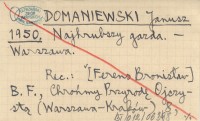 DOMANIEWSKI Janusz
1950, Najhrubszy gazda. –
Warszawa.
Rec.: "[Ferens Bronisław]
B. F., Chrońmy Przyrodę Ojczy-
stą (Warszawa-Kraków)